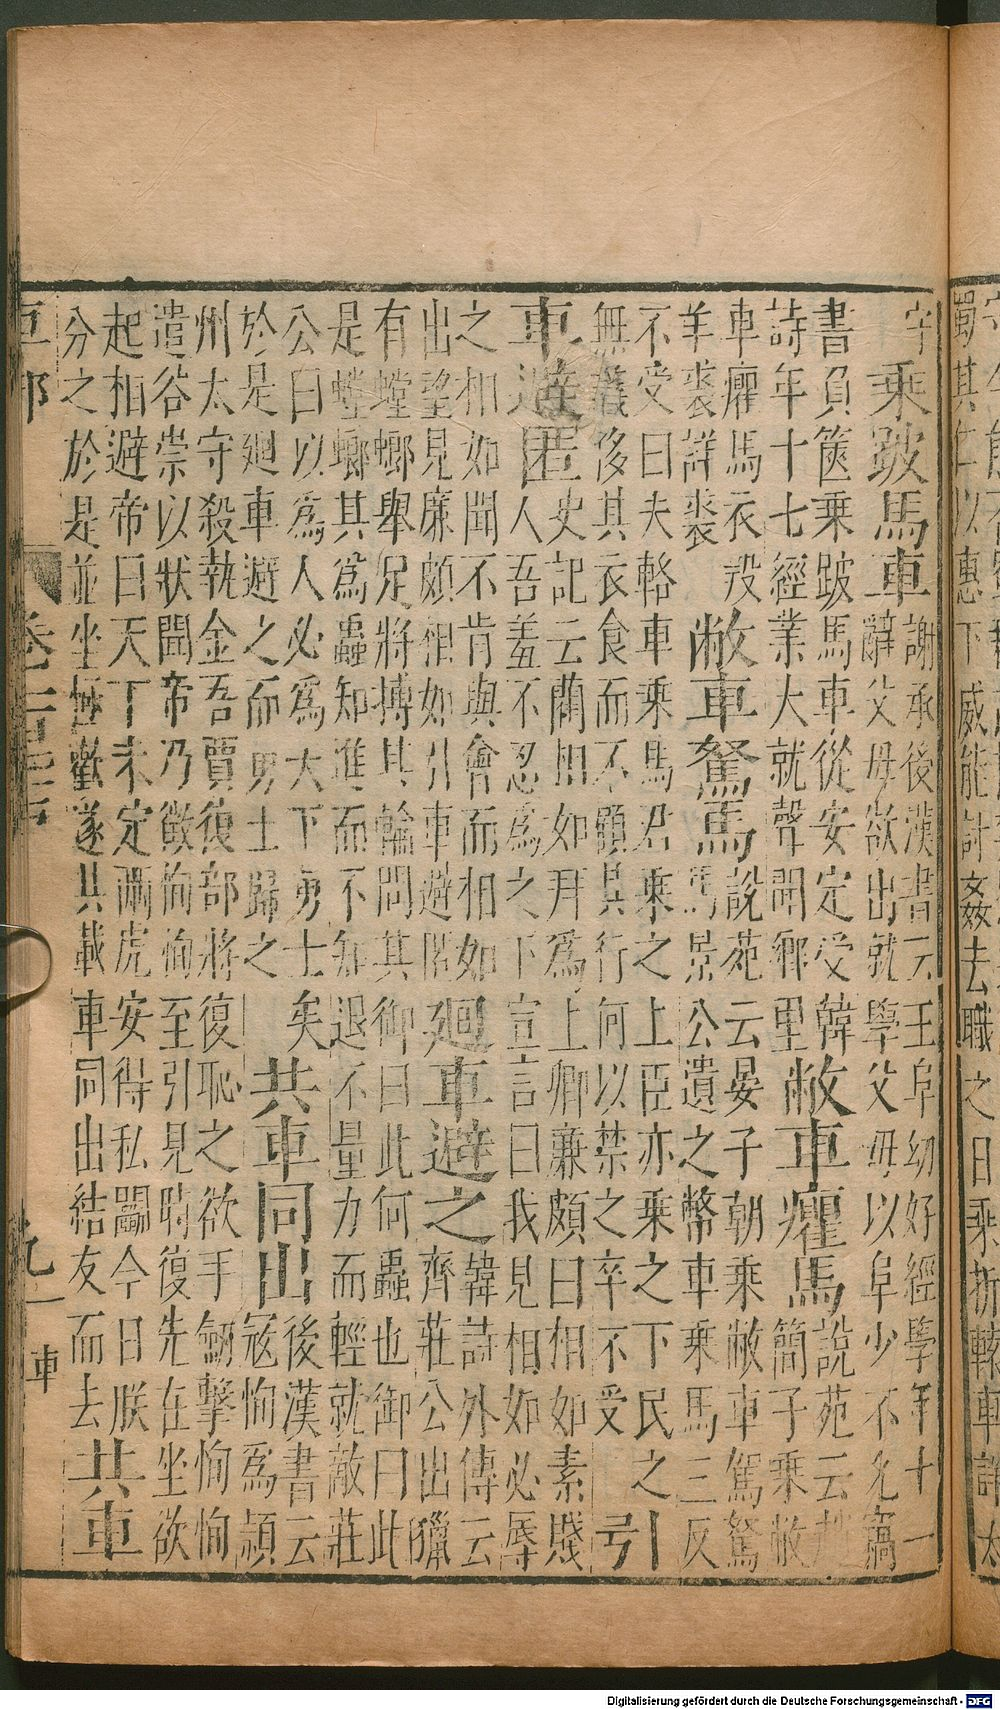 蜀其仁以惠下威能討姦去職之日乘折轅車
字
乘跛馬車
謝承後漢書云王阜幼好經學年十一
辭父母欲出就學父母以阜少不允竊
書負篋乘跛馬車從安定受韓
詩年十七經業大就聲聞鄉里
敝車癯馬
說苑云趙
簡子乘敝
車癯馬衣羖
羊裘詳裘
敝車駑馬
說苑云晏子朝乘敝車駕駑
馬景公遺之幣車乘馬三反
不受曰夫輅車乘馬君乘之上臣亦乘之下民之
無義侈其衣食而不顧其行何以禁之卒不受
引
車避匿
史記云藺相如拜為上卿廉頗曰相如素賤
人吾羞不忍為之下宣言曰我見相如必辱
之相如聞不肯與會而相如
出望見廉頗相如引車避匿
廻車避之
韓詩外傳云
齊莊公出獵
有螳螂舉足將搏其輪問其御曰此何蟲也御曰此
是螳螂其為蟲知進而不知退不量力而輕就敵莊
公曰以為人必為天下勇士矣
於是廻車避之而勇士歸之
共車同出
後漢書云
冦恂為頴
州太守殺執金吾賈復部將復恥之欲手劒擊恂恂
遣谷崇以狀聞帝乃徵恂恂至引見時復先在坐欲
起相避帝曰天下未定兩虎安得私鬭今日朕
分之於是並坐極歡遂共載車同出結友而去
共車
車部
卷一百
九
車
Digitalisierung gefördert durch die Deutsche Forschungsgemeinschaft - DFG